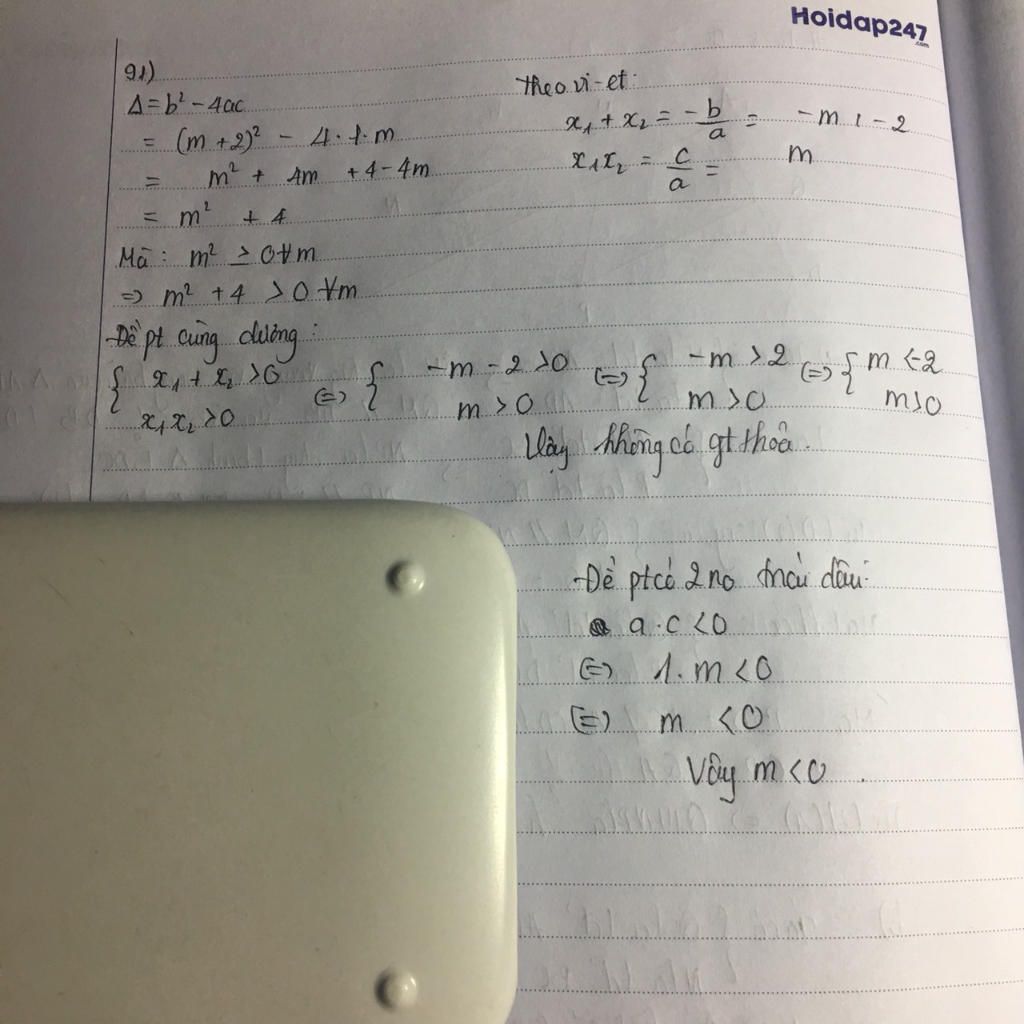 Hoidap247
.com
91)
Δ = b² - 4ac
= (m + 2)² - 4 · 1 · m
= m² + 4m + 4 - 4m
= m² + 4
Mà : m² ≥ 0 ∀m
=> m² + 4 > 0 ∀m
Theo vi-et:
x₁ + x₂ = -b/a = -m - 2
x₁x₂ = c/a = m
Để pt cùng dương :
{ x₁ + x₂ > 0 (=) { -m - 2 > 0 (=) { -m > 2 (=) { m < -2
x₁x₂ > 0 m > 0 m > 0 m > 0
Vậy không có gt thỏa .
Để pt có 2 no trái dấu:
a · c < 0
(=) 1 . m < 0
(=) m < 0
Vậy m < 0 .